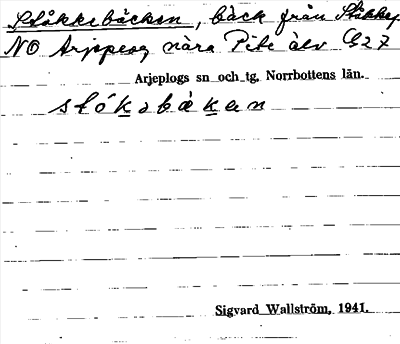 Slåkkebäcken, bäck från
NO Arjeplog nära Pite älv G 27
Arjeplogs sn och tg, Norrbottens län.
Sigvard Wallström, 1941.